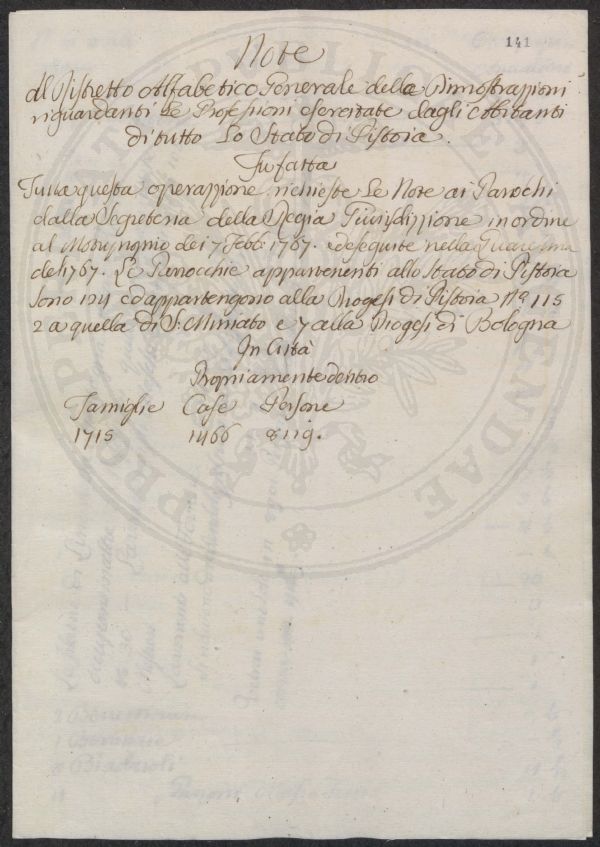 141
Note
Al Ristretto Alfabetico Generale della Dimostrazioni
riguardanti Le Professioni esercitate dagli Abitanti
di tutto Lo Stato di Pistoia.
Fu fatta
Tutta questa operazzione, richieste Le Note ai Parochi
dalla Segreteria della Regia Giurisdizzione in ordine
al Motupproprio dei 17 Febb: 1767. ed eseguite nella
del 1767. Le Parrocchie appartenenti allo Stato di Pistoia
sono 124 ed appartengono alla Diogesi di Pistoia N.o 115
2 a quella di S: Miniato e 7 alla Diogesi di Bologna
In Città
Propriamente dentro
Famiglie Case Persone
1715 1466 8119.